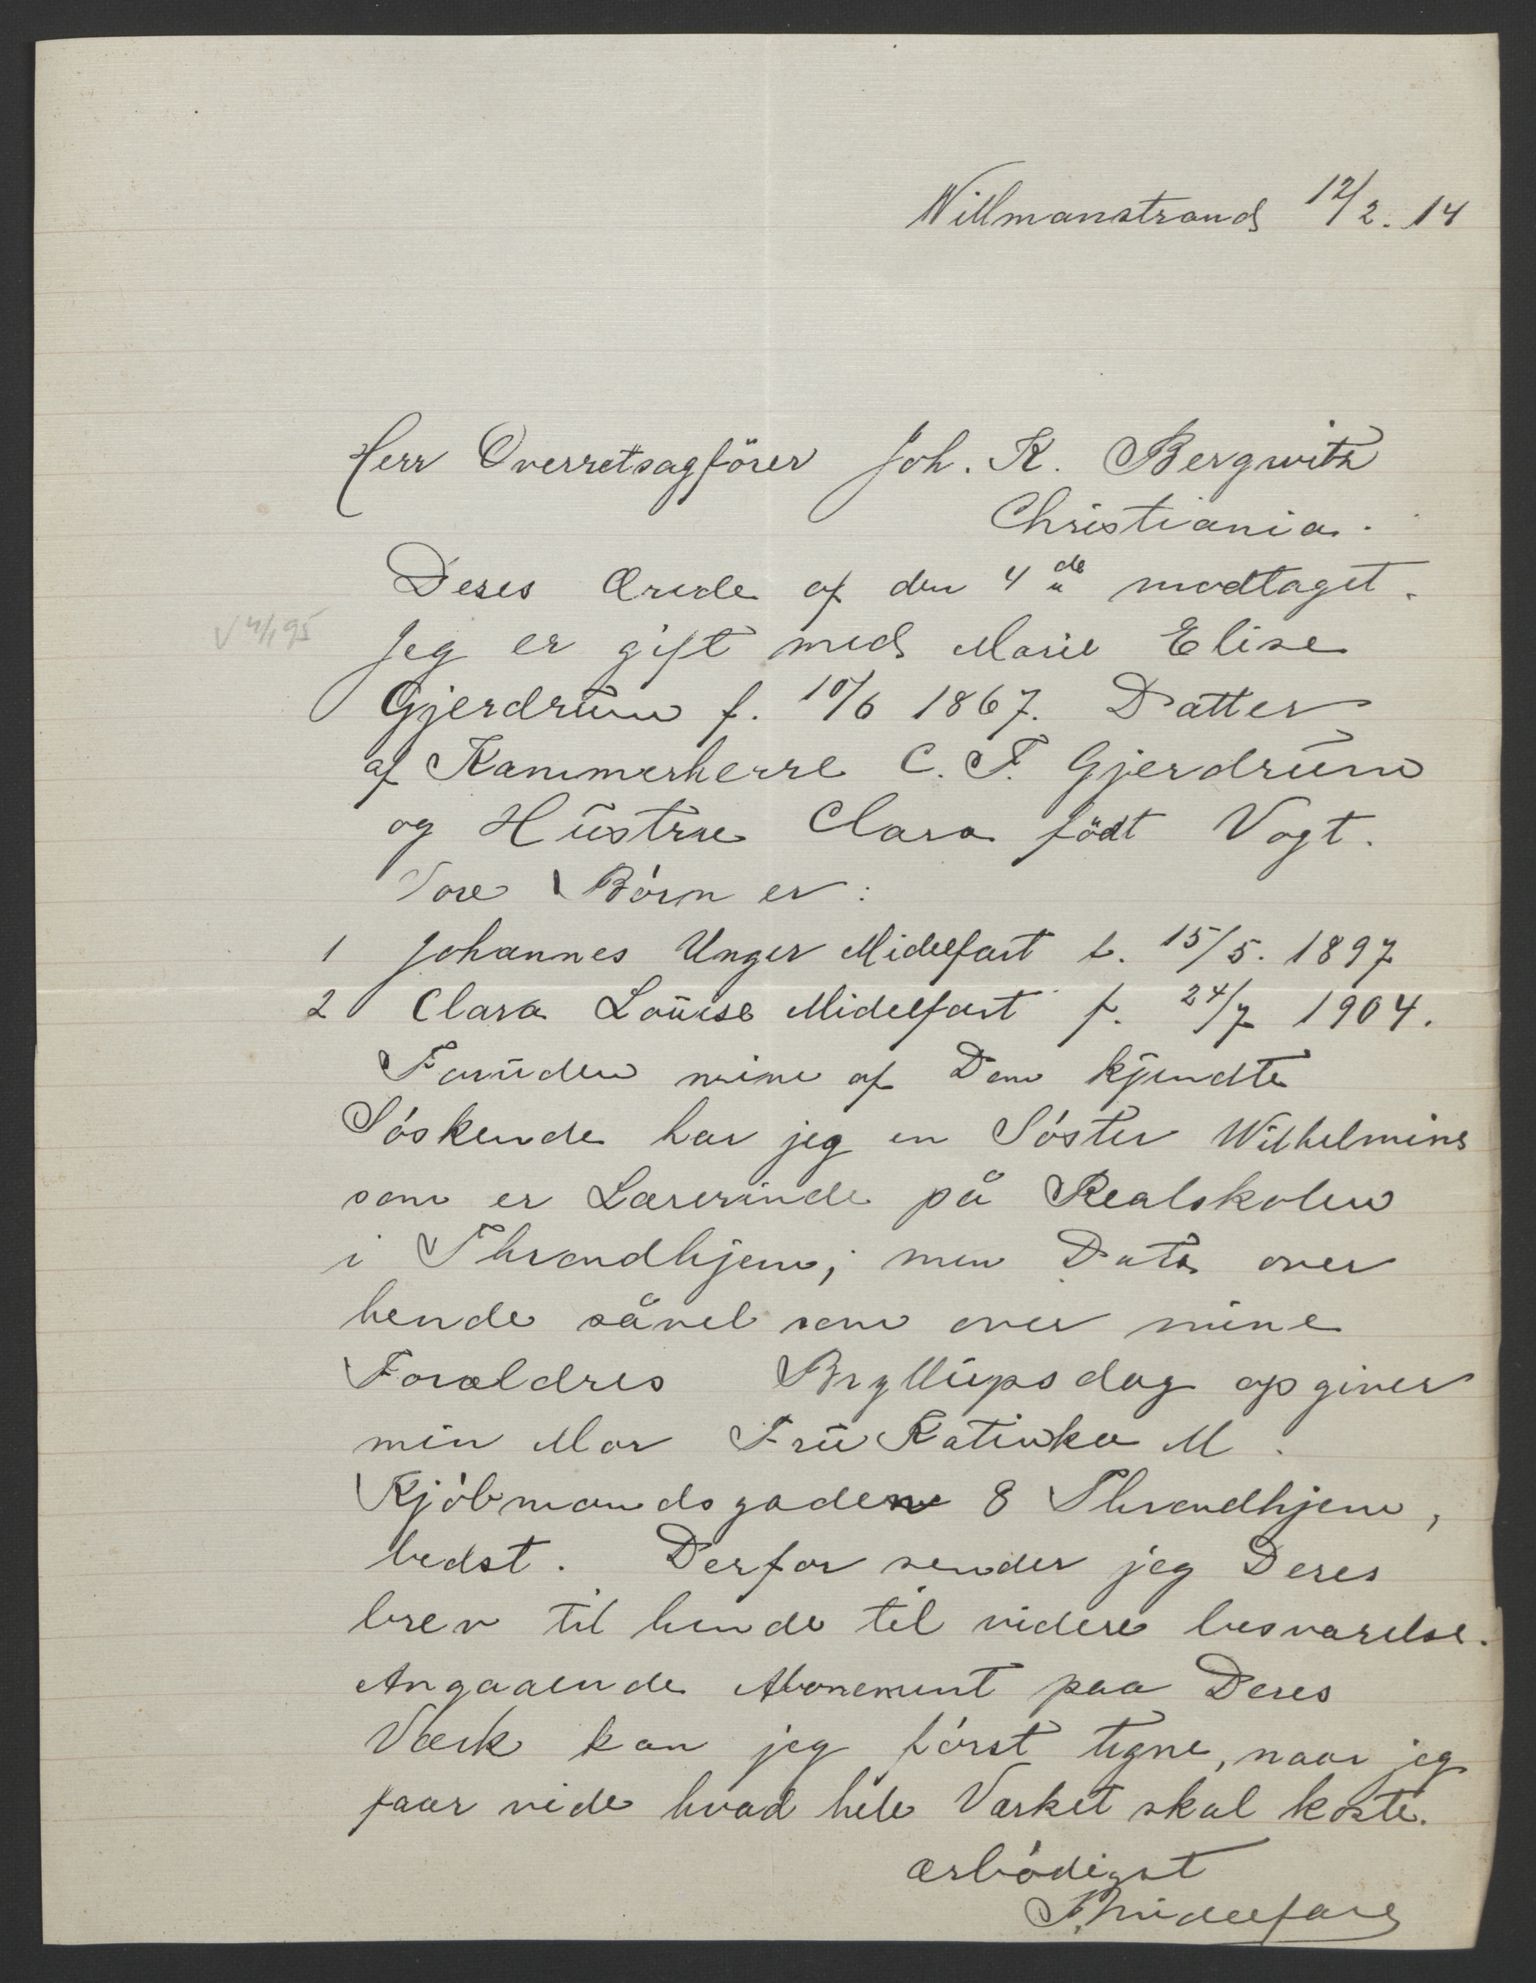 Willmanstrand 12/2. 14
Herr Overretsagförer Joh. K. Bergwitz
Christiania.
Deres Ærede af den 4de modtaget.
Jeg er gift med Marie Elise
Gjerdrum f. 10/6 1867. Datter
af Kammerherre C. F. Gjerdrum
og Hustrue Clara födt Vogt.
Vore Börn er:
1 Johannes Unger Midelfart f. 15/5. 1897
2 Clara Louise Midelfart f. 24/7 1904.
Foruden mine af Dem kjendte
Söskende har jeg en Söster Wilhelmine
som er Lærerinde på Realskolen
i Throndhjem; men Data over
hende såvel som over mine
Forældres Bryllupsdag opgiver
min Mor Fru Katinka M.
Kjöbmandsgaden 8 Throndhjem,
bedst. Derfor sender jeg Deres
brev til hende til videre besvarelse.
Angaaende Abonement paa Deres
Værk kan jeg först tegne, naar jeg
faar vide hvad hele Værket skal koste.
ærbödigst
Midelfart